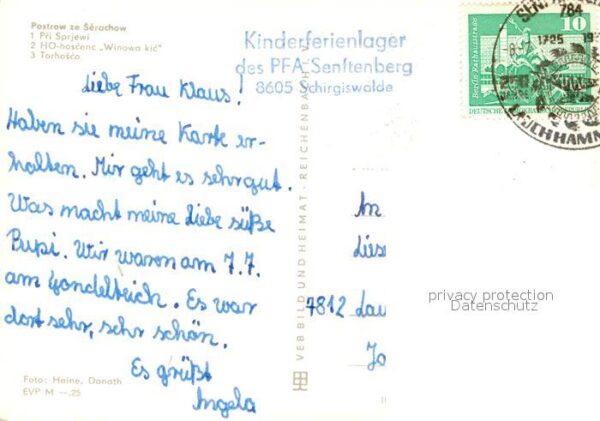 Postrow ze Šěrachow
1 Při Sprjewi
2 HO-hosćenc „Winowa kić"
3 Torhošćo
Kinderferienlager
des PFA Senftenberg
8605 Schirgiswalde
Liebe Frau Klaus!
Haben sie meine Karte er-
halten. Mir geht es sehr gut.
Was macht meine liebe süße
Pupi. Wir waren am 7.7.
am Gondelteich. Es war
dort sehr, sehr schön.
Es grüßt
Angela
Foto: Heine, Donath
EVP M —,25
VEB BILD UND HEIMAT · REICHENBACH
An
Liese
7812 Lau
10
784
1725
privacy protection
Datenschutz